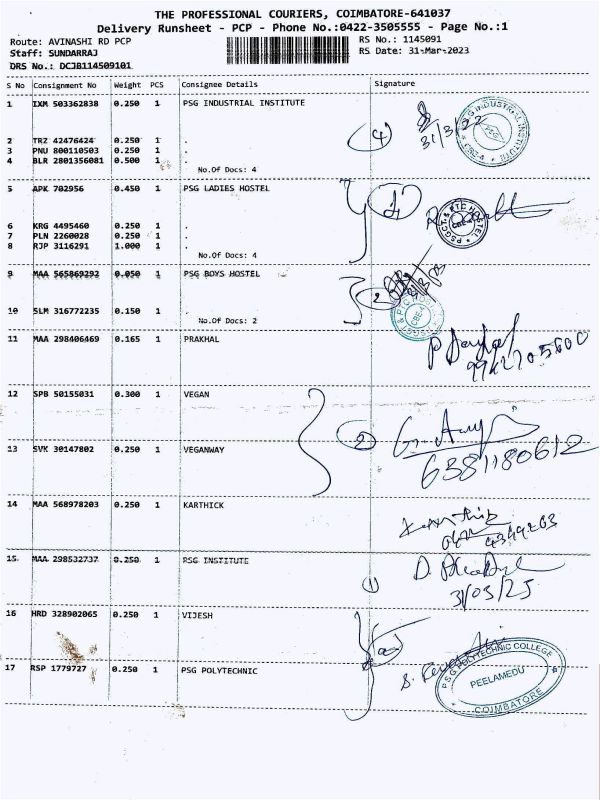 THE PROFESSIONAL COURIERS, COIMBATORE-641037
Delivery Runsheet - PCP - Phone No.:0422-3505555 - Page No.:1
Route: AVINASHI RD PCP RS No.: 1145091
Staff: SUNDARRAJ RS Date: 31-Mar-2023
DRS No.: DCJB114509101
S No Consignment No Weight PCS Consignee Details Signature
1 IXM 503362838 0.250 1 PSG INDUSTRIAL INSTITUTE
4
2 TRZ 42476424 0.250 1 .
3 PNU 800110503 0.250 1 .
4 BLR 2801356081 0.500 1 .
No.Of Docs: 4
5 APK 702956 0.450 1 PSG LADIES HOSTEL
6 KRG 4495460 0.250 1 .
7 PLN 2260028 0.250 1 .
8 RJP 3116291 1.000 1 .
No.Of Docs: 4
9 MAA 565869292 0.050 1 PSG BOYS HOSTEL
2
10 SLM 316772235 0.150 1 .
No.Of Docs: 2
11 MAA 298406469 0.165 1 PRAKHAL
12 SPB 50155031 0.300 1 VEGAN
2
6381180612
13 SVK 30147802 0.250 1 VEGANWAY
14 MAA 568978203 0.250 1 KARTHICK
15 MAA 298532737 0.250 1 RSG INSTITUTE
1
16 HRD 328902065 0.250 1 VIJESH
17 RSP 1779727 0.250 1 PSG POLYTECHNIC
PSG POLYTECHNIC COLLEGE
PEELAMEDU
COIMBATORE